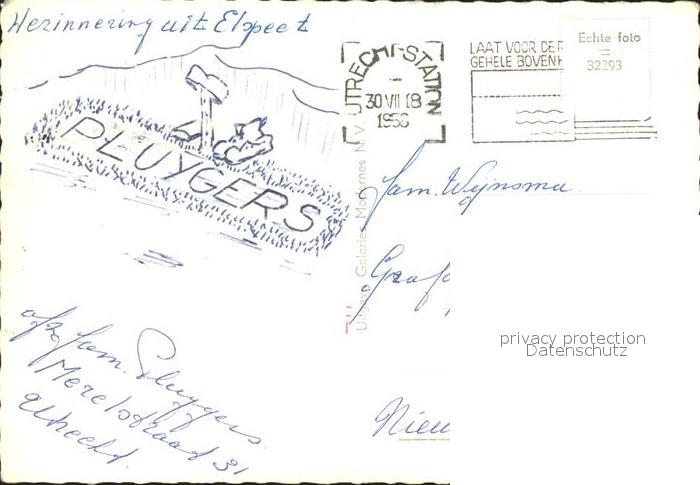 Herinnering uit Elspeet
PLUYGERS
UTRECHT-STATION
30 VII 18
1956
LAAT VOOR DE
GEHELE BOVEN
Echte foto
32293
Uitgave Galeries Modernes N.V. Utrecht
fam. Wijnsma
Graf
Nieu
afz. fam. Pluygers
Merelstraat 31
Utrecht.
privacy protection
Datenschutz